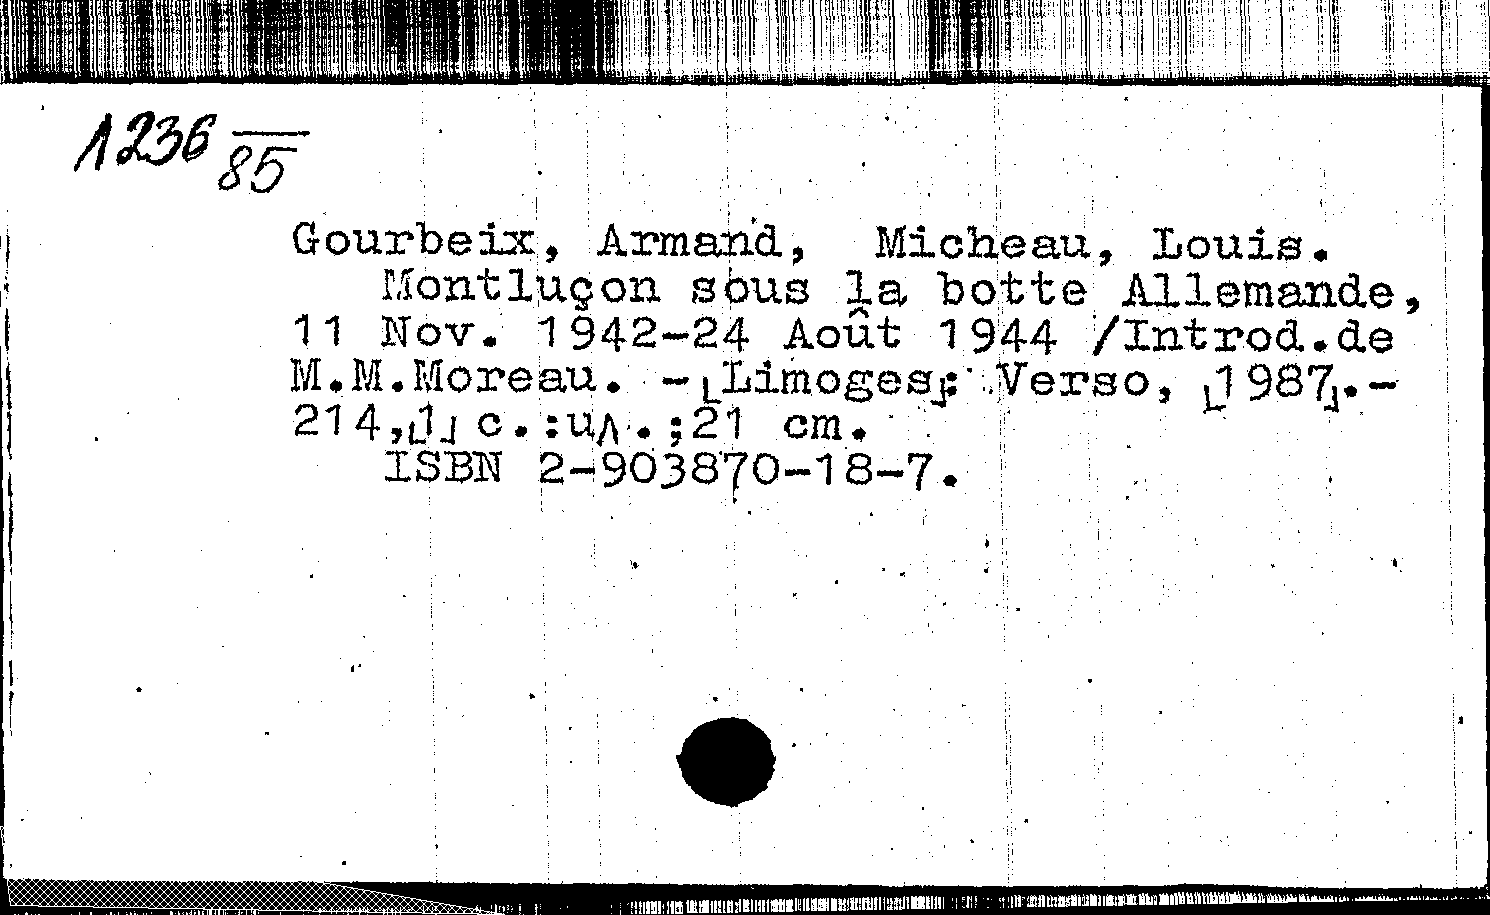 Л236 85
Gourbeix, Armand, Micheau, Louis.
Montluçon sous la botte Allemande,
11 Nov. 1942-24 Août 1944 /Introd.de
M.M.Moreau. - [Limoges]: Verso, [1987].-
214,[1] c.:ил.;21 cm.
ISBN 2-903870-18-7.